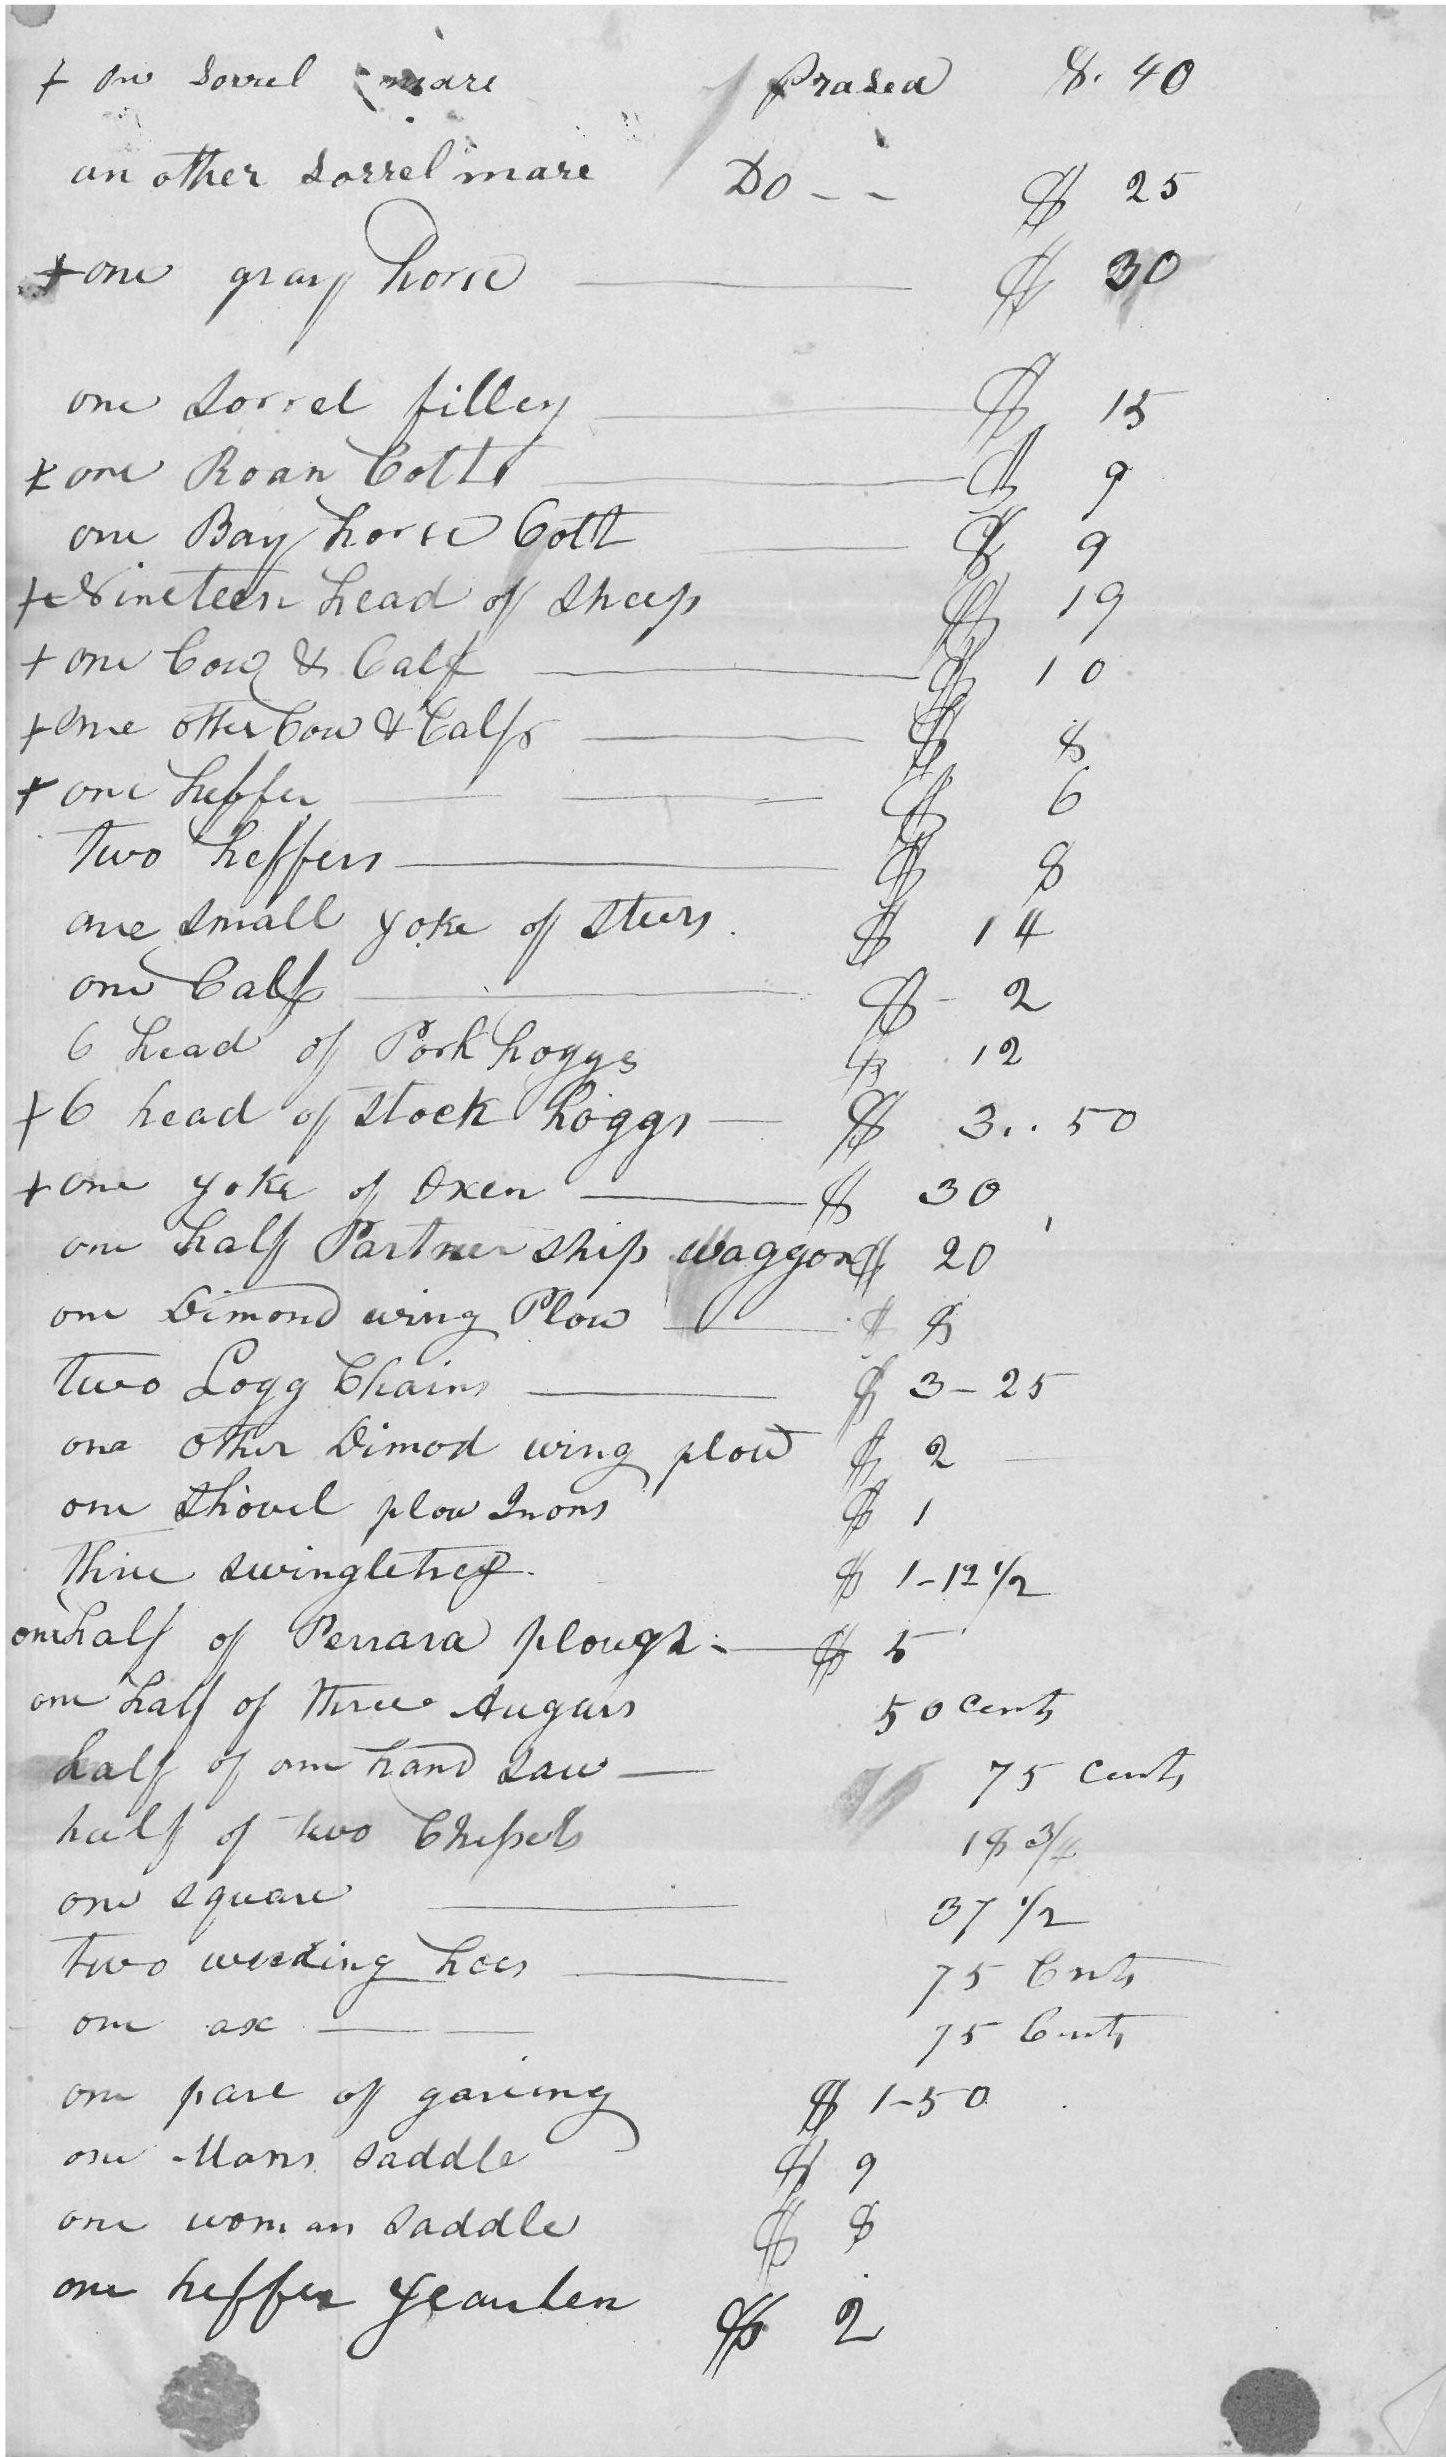 + one sorrel mare prased $. 40
an other sorrel mare Do - - $ 25
+ one gray horse $ 30
one sorrel filley $ 15
+ one Roan Colt $ 9
one Bay horse Colt $ 9
+ Nineteen head of sheep $ 19
+ one Cow & Calf $ 10
+ one other Cow & Calf $ 8
+ one heffer $ 6
two heffers $ 8
one small yoke of steers $ 14
one Calf $ - 2
6 head of Pork hoggs $ 12
+ 6 head of stock hoggs $ 3.. 50
+ one yoke of oxen $ 30
one half Partner ship waggon $ 20
one Dimond wing Plow $ 8
two Logg Chains $ 3 - 25
one other Dimod wing plow $ 2
one shovel plow Irons $ 1
three swingletrees $ 1 - 12 1/2
one half of plough $ 5
one half of three Augurs 50 cents
half of one hand saw 75 cents
half of two Chissels 18 3/4
one square 37 1/2
two weeding hoes 75 Cents
one ax 75 Cents
one pare of garing $ 1-50
one Mans saddle $ 9
one woman saddle $ 8
one heffer yearlen $ 2